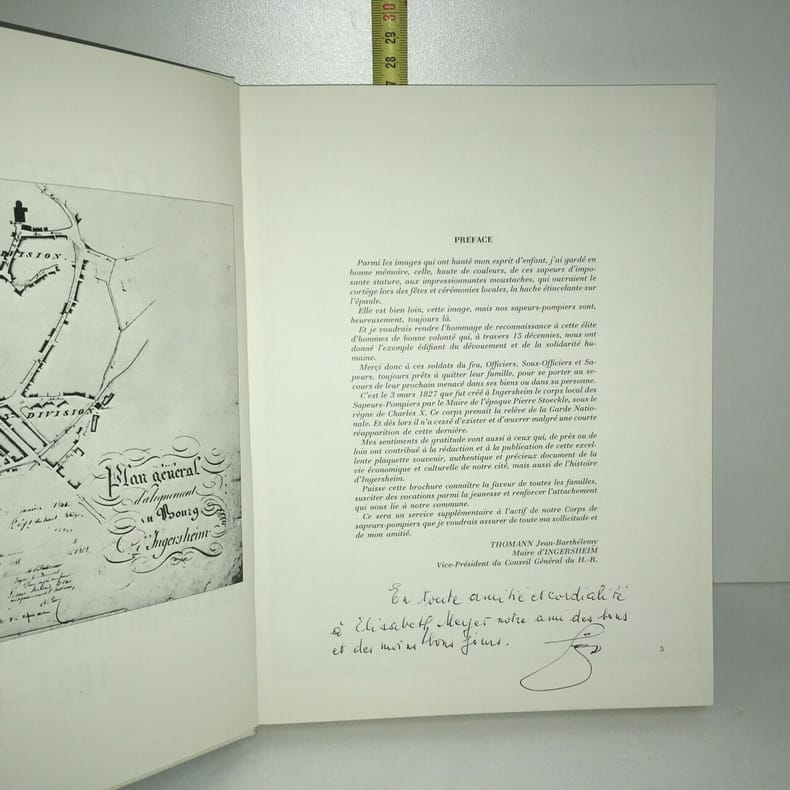 28 29 30
VISION.
DIVISION
Plan général
d'alignement
du Bourg
d'Ingersheim
PREFACE
Parmi les images qui ont hanté mon esprit d'enfant, j'ai gardé en
bonne mémoire, celle, haute de couleurs, de ces sapeurs d'impo-
sante stature, aux impressionnantes moustaches, qui ouvraient le
cortège lors des fêtes et cérémonies locales, la hache étincelante sur
l'épaule.
Elle est bien loin, cette image, mais nos sapeurs-pompiers sont,
heureusement, toujours là.
Et je voudrais rendre l'hommage de reconnaissance à cette élite
d'hommes de bonne volonté qui, à travers 15 décennies, nous ont
donné l'exemple édifiant du dévouement et de la solidarité hu-
maine.
Merci donc à ces soldats du feu, Officiers, Sous-Officiers et Sa-
peurs, toujours prêts à quitter leur famille, pour se porter au se-
cours de leur prochain menacé dans ses biens ou dans sa personne.
C'est le 3 mars 1827 que fut créé à Ingersheim le corps local des
Sapeurs-Pompiers par le Maire de l'époque Pierre Stoeckle, sous le
règne de Charles X. Ce corps prenait la relève de la Garde Natio-
nale. Et dès lors il n'a cessé d'exister et d'œuvrer malgré une courte
réapparition de cette dernière.
Mes sentiments de gratitude vont aussi à ceux qui, de près ou de
loin ont contribué à la rédaction et à la publication de cette excel-
lente plaquette souvenir, authentique et précieux document de la
vie économique et culturelle de notre cité, mais aussi de l'histoire
d'Ingersheim.
Puisse cette brochure connaître la faveur de toutes les familles,
susciter des vocations parmi la jeunesse et renforcer l'attachement
qui nous lie à notre commune.
Ce sera un service supplémentaire à l'actif de notre Corps de
sapeurs-pompiers que je voudrais assurer de toute ma sollicitude et
de mon amitié.
THOMANN Jean-Barthélemy
Maire d'INGERSHEIM
Vice-Président du Conseil Général du H.-R.
En toute amitié et cordialité
à Elisabeth Meyer notre ami des bons
et des moins bons jours.
5